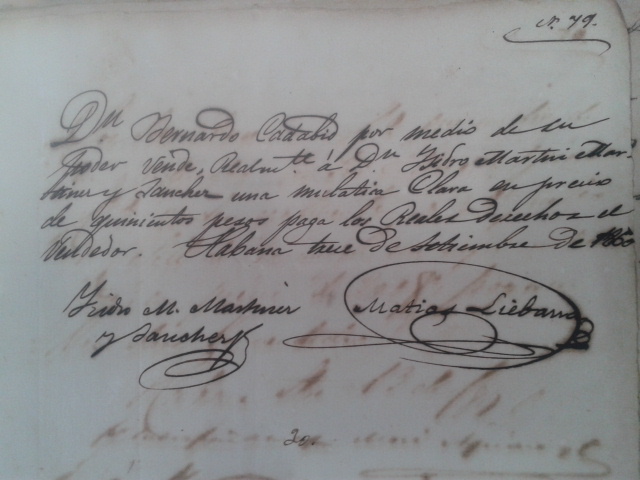 N. 79.
Dn Bernardo Cadabid por medio de su
poder vende Realmte. á Dn Ysidro Martin Mar-
tines y Sanches una mulatica Clara en precio
de quinientos pesos paga los Reales derechos el
vendedor. Habana trece de Setiembre de
Ysidro M. Martines
y Sanches
Matias Liebana